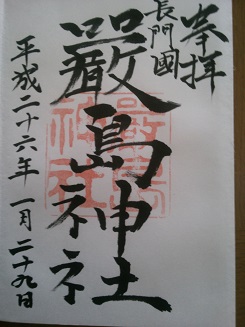 奉拝
長門國
巖島神社
平成二十六年一月二十九日
嚴島神社